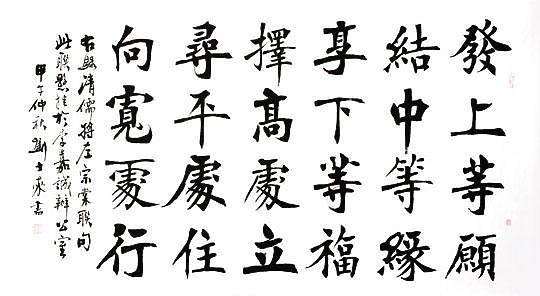 發上等願
結中等緣
享下等福
擇高處立
尋平處住
向寬處行
清儒將左宗棠聯句
此聯懸挂於李嘉誠辦公室
甲午仲秋劉士書